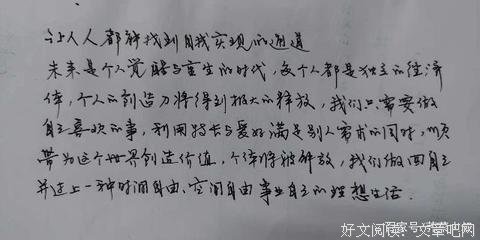 让人人都能找到自我实现的通道
未来是个人觉醒与重生的时代，每个人都是独立的经济
体，个人的创造力将得到极大的释放，我们只需要做
自己喜欢的事，利用特长与爱好满足别人需求的同时，顺
带为这个世界创造价值，个体将被解放，我们做回自己
并过上一种时间自由、空间自由事业自主的理想生活。
好文阅读：文章吧网